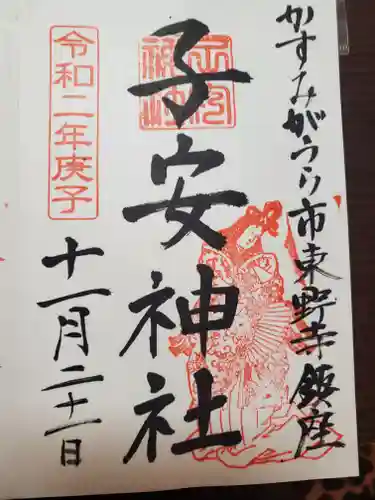 かすみがうら市東野寺鎮座
子安神社
令和二年庚子
十一月二十一日